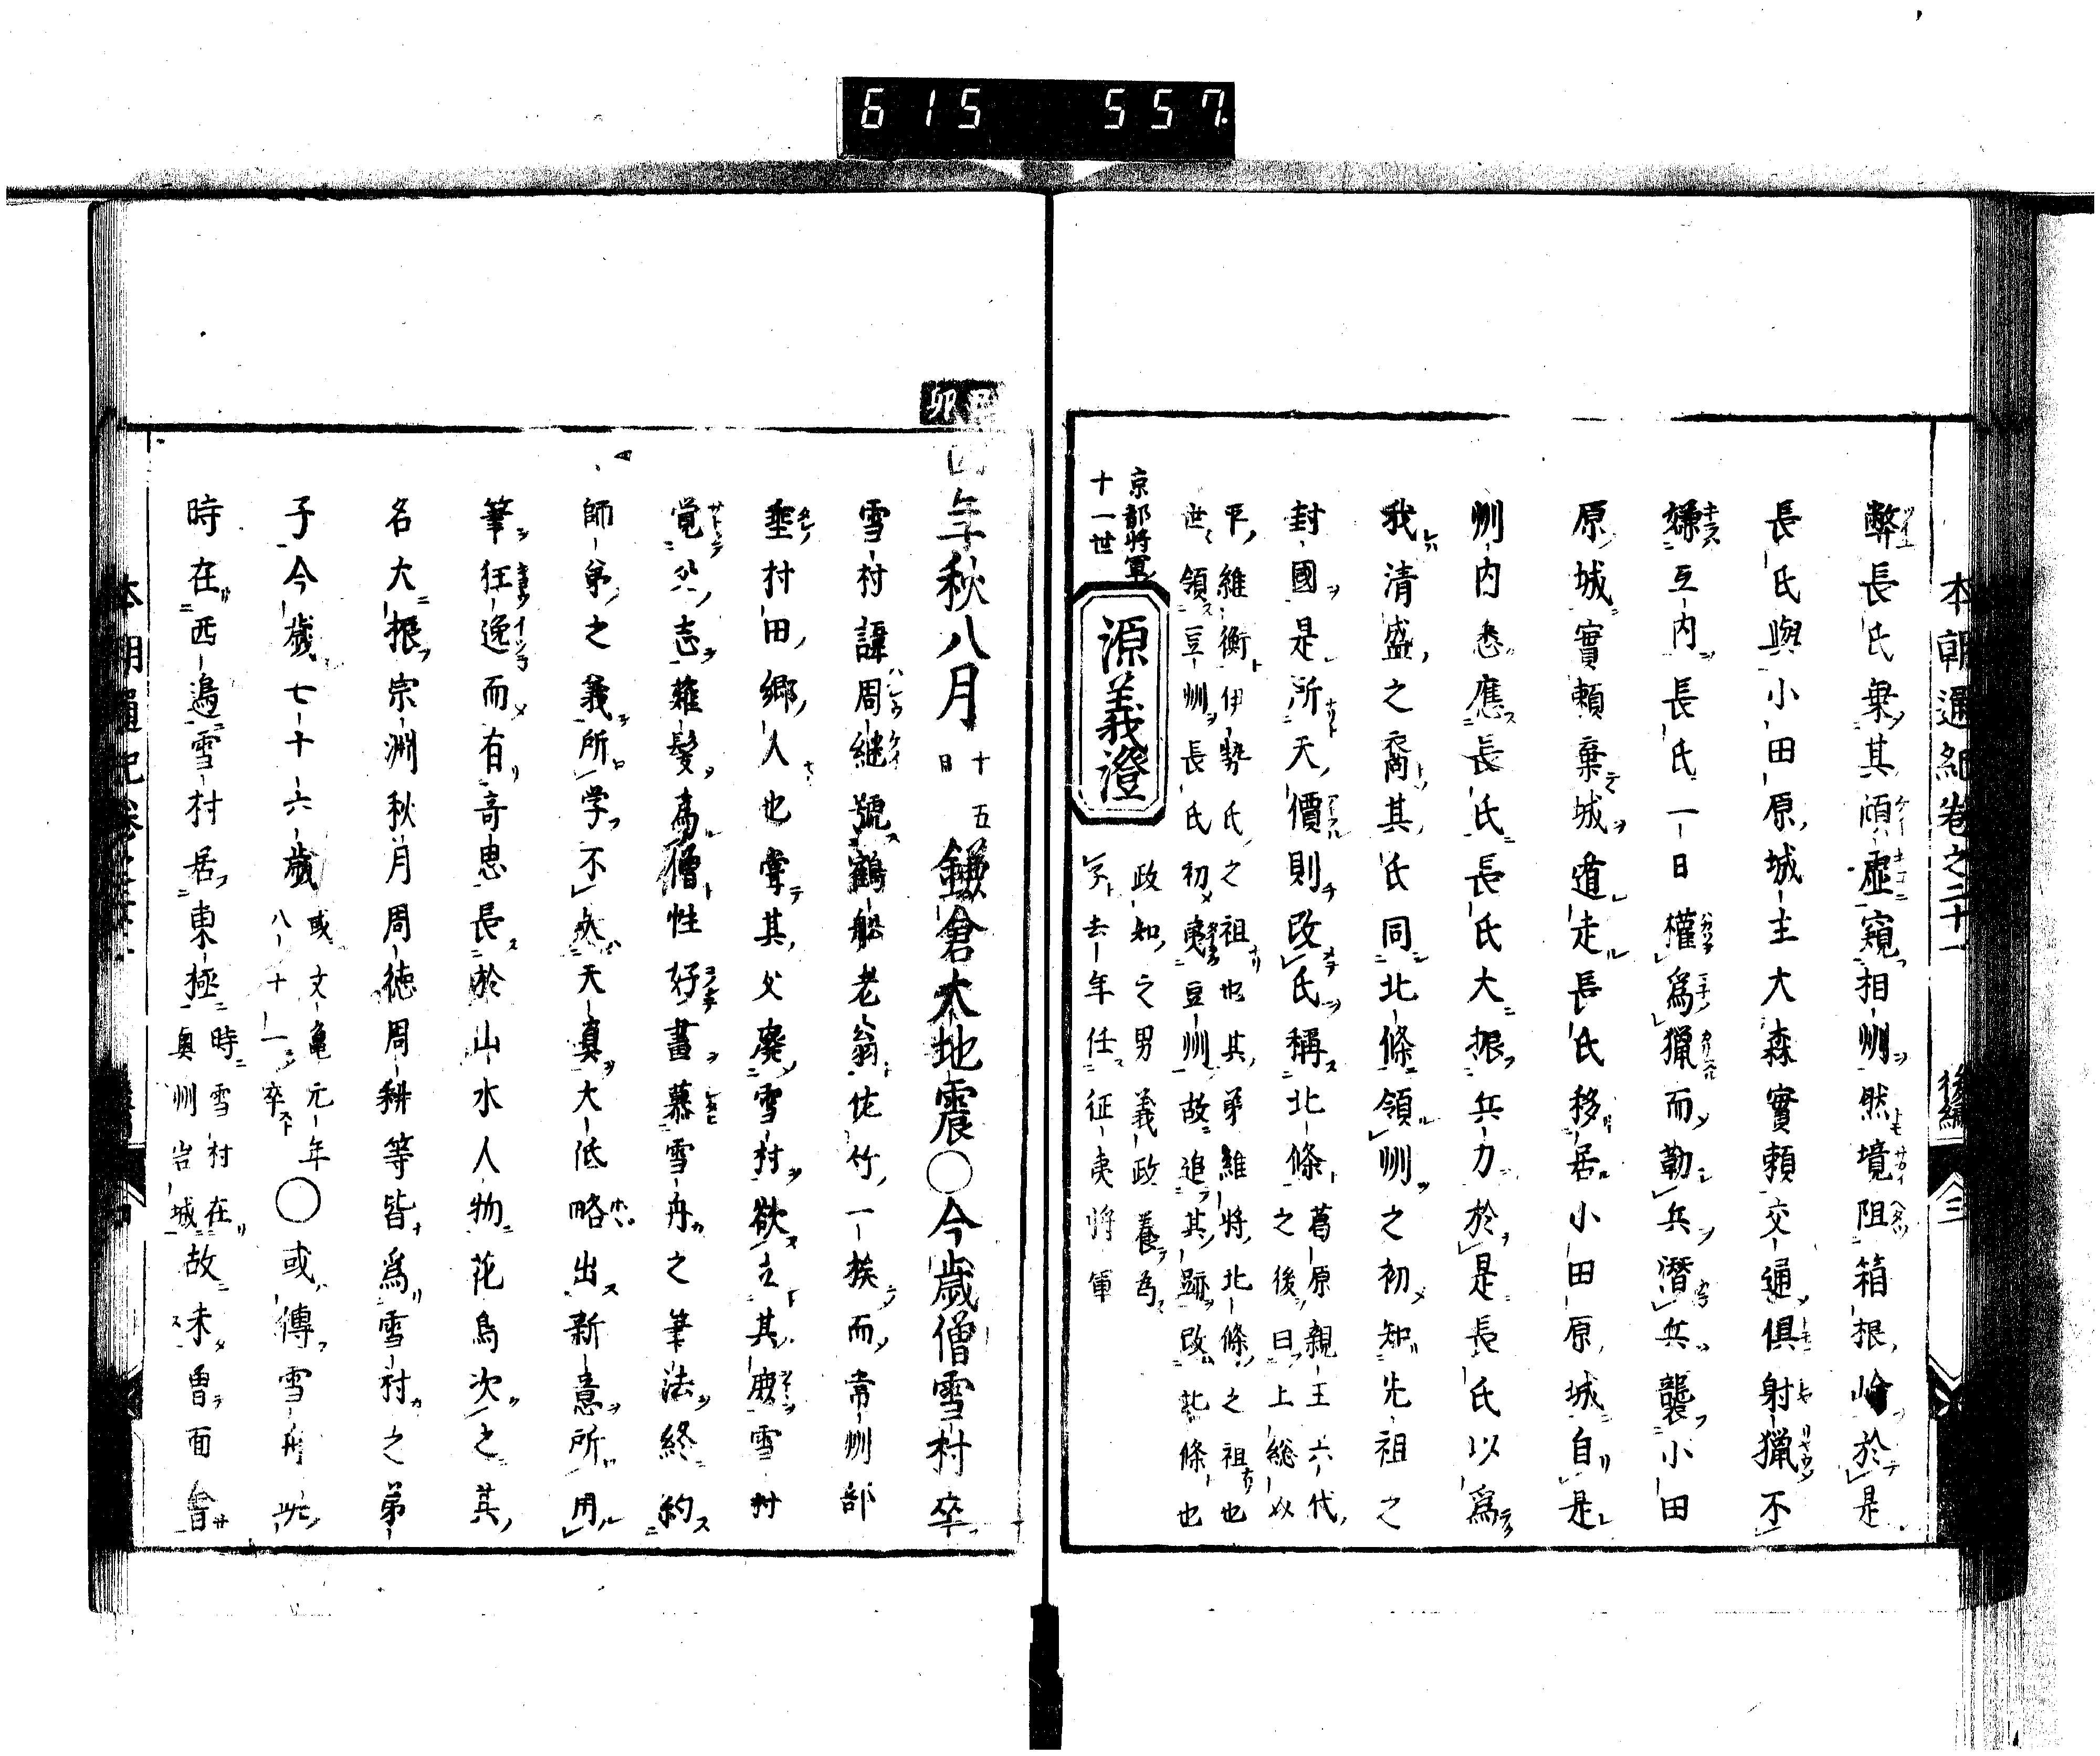 615 557
本朝通紀卷之二十一 後編 三
弊長氏乗其頃虛窺相州然境阻箱根嶮於是
長氏與小田原城主大森實頼交通倶射猟不
嫌互内長氏一日權爲猟而勒兵潛兵襲小田
原城實頼棄城遁走長氏移居小田原城自是
州内悉應長氏長氏大振兵力於是長氏以爲
我清盛之裔其氏同北條領州之初知先祖之
封國是所天價則改氏稱北條葛原親王六代
之後曰上総
平維衡伊勢氏之祖也其弟維将北條之祖也
世領豆州長氏初夷豆州故追其跡改北條也
京都将軍
十一世
源義澄
政知之男義政養為
子去年任征夷將軍
卯
四年秋八月十五
日鎌倉大地震○今歳僧雪村卒
雪村諱周継號鶴船老翁佐竹一族而常州部
垂村田郷人也嘗其父廢雪村欲立其庶雪村
覚此志薙髪爲僧性好畫慕雪舟之筆法終約
師弟之義所学不失天真大低略出新意所用
筆狂逸而有奇思長於山水人物花鳥次之其
名大振宗淵秋月周徳周耕等皆爲雪村之弟
子今歳七十六歳或文亀元年
八十一卒○或傳雪舟此
時在西邉雪村居東極時雪村在
奥州岩城故未曽面會